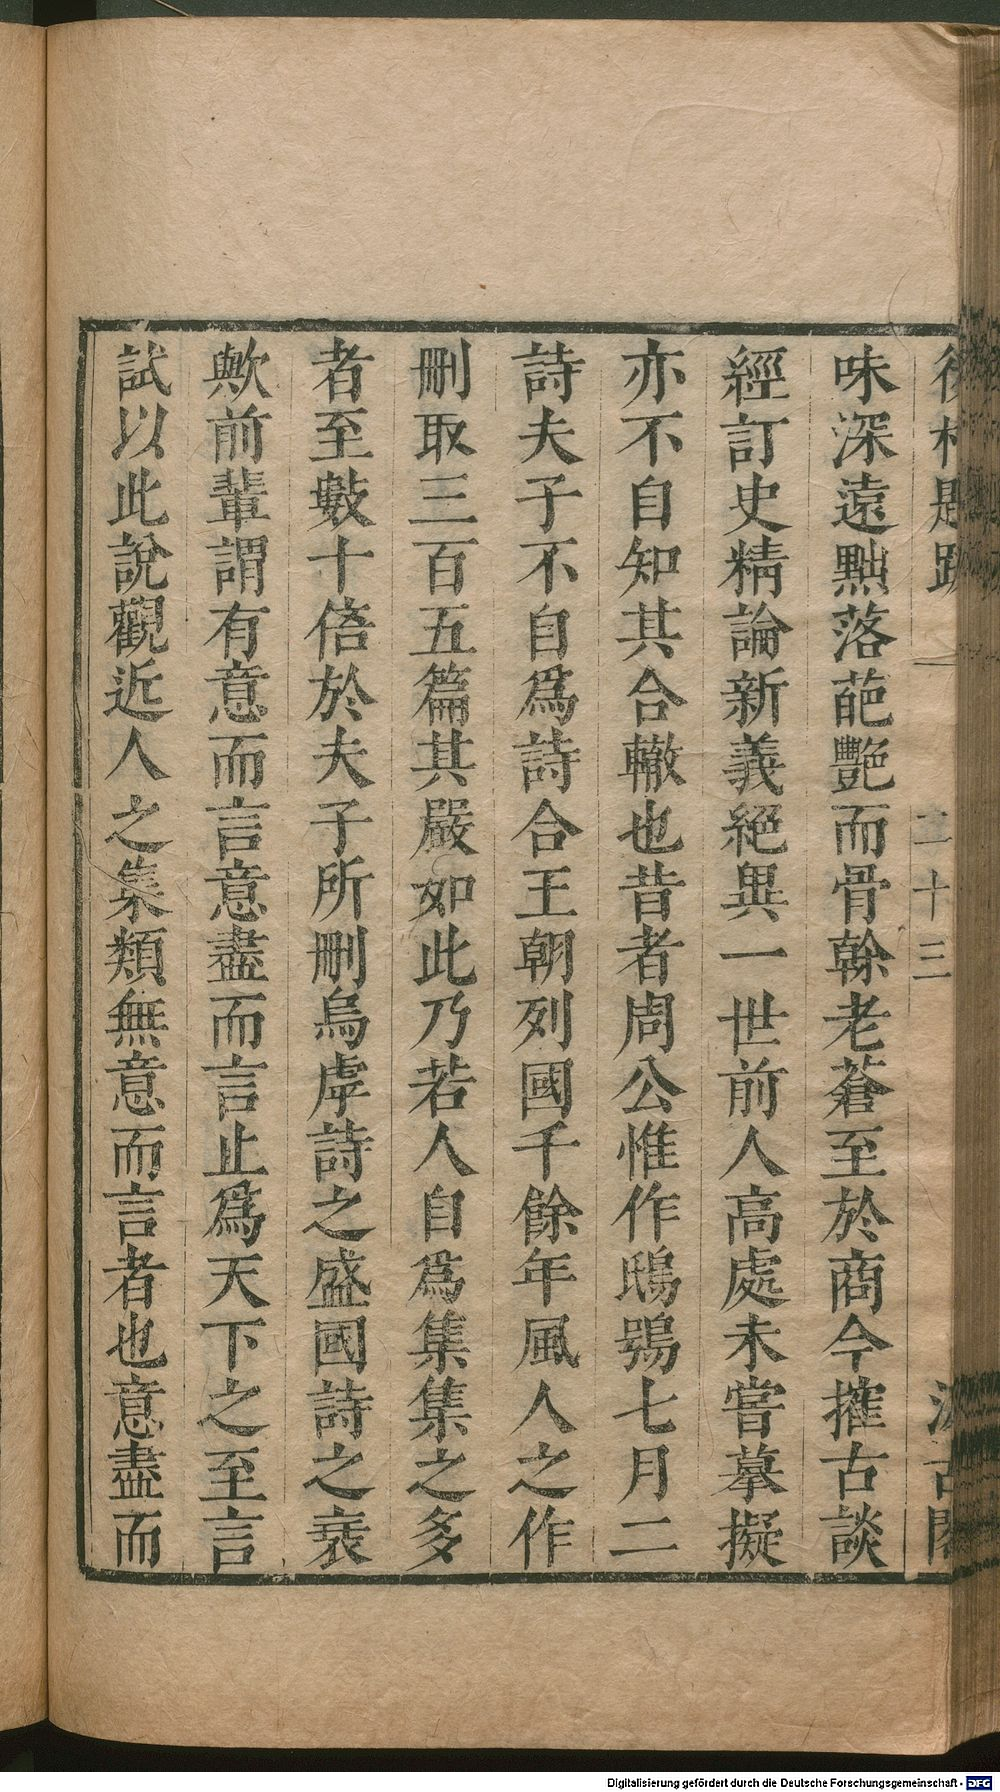 後村題跋 一 二十三 汲古閣
味深遠㸃落葩艷而骨幹老蒼至於商今搉古談
經訂史精論新義絕異一世前人高處未嘗摹擬
亦不自知其合轍也昔者周公惟作鴟鴞七月二
詩夫子不自爲詩合王朝列國千餘年風人之作
刪取三百五篇其嚴如此乃若人自爲集集之多
者至數十倍於夫子所刪烏虖詩之盛國詩之衰
歟前輩謂有意而言意盡而言止爲天下之至言
試以此說觀近人之集類無意而言者也意盡而
Digitalisierung gefördert durch die Deutsche Forschungsgemeinschaft - DFG